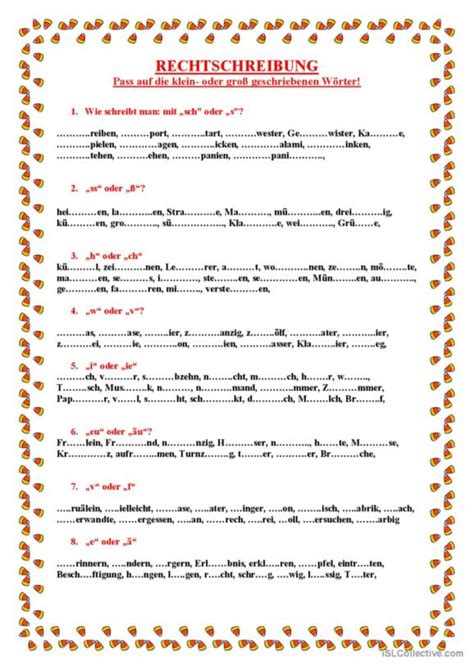 RECHTSCHREIBUNG
Pass auf die klein- oder groß geschriebenen Wörter!
1. Wie schreibt man: mit „sch" oder „s"?
……….reiben, ……….port, ……….tart, ……….wester, Ge……….wister, Ka……….e,
……….pielen, ……….agen, ……….icken, ……….alami, ……….inken,
……….tehen, ……….ehen, ……….panien, ……….pani……….,
2. „ss" oder „ß"?
hei………en, la………en, Stra………e, Ma………, mü………en, drei………ig,
kü………en, gro………, so………e, Kla………e, wei………, Grü………e,
3. „h" oder „ch"
kü……l, zei………nen, Le………rer, a………t, wo………nen, ze……n, mö………te,
ma………en, se………s, i………, ste………en, se………en, Mün………en, au……,
ge………en, fa………ren, mi…..., verste………en,
4. „w" oder „v"?
………as, ………ase, ………ier, z………anzig, z………ölf, ………ater, ………ier,
z………ei, ………ie, ………on, ………ien, ………asser, Kla………ier, ………eg,
5. „i" oder „ie"
………ch, v………r, s………bzehn, n………cht, m………ch, h………r, w………,
T………sch, Mus……k, n………, n………mand, ………mmer, Z………mmer,
Pap………r, v………l, s………ht, sch………kt, d………ch, M…..lch, Br………f,
6. „eu" oder „äu"?
Fr……lein, Fr………nd, n………nzig, H………ser, n………, h………te, M………se,
Kr………z, aufr………men, Turnz………g, t………er, ………er, Br………che,
7. „v" oder „f"
…..ruälein, …..ielleicht, …..ase, …..ater, ….inger, …..on, …..isch, …..abrik, …..ach,
…..erwandte, …..ergessen, …..an, …..rech, …..rei, …..oll, …..ersuchen, …..arbig
8. „e" oder „ä"
……rinnern, …..ndern, …..rgern, Erl……bnis, erkl…..ren, …..pfel, eintr…..ten,
Besch….ftigung, h….ngen, l….gen, r….cht, schr….g, w….g, l…..ssig, T….ter,
iSLCollective.com